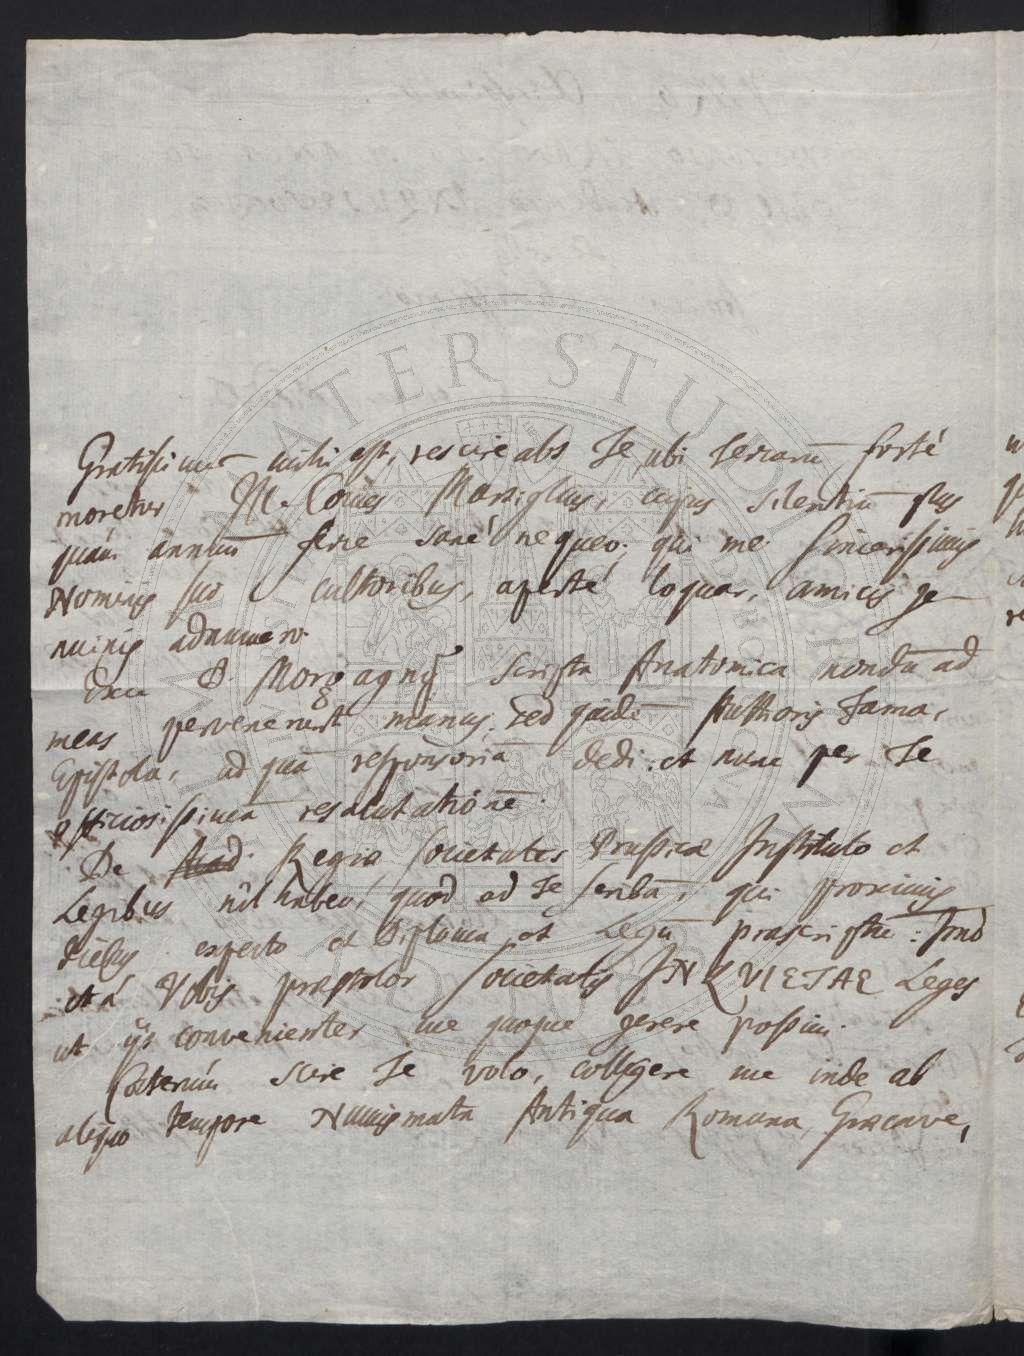 Gratissimum mihi est, rescire abs Te, ubi Terrarũ forté
moretur Ill. Comes Marsiglius, cujus silentiũ plus
quám annum ferre sané nequeo; qui me Sincerissimis
Nominis sui cultoribus, aperté loquar, amicis ge-
nuinis adnumero.
D. Morgagnij scripta Anatomica nondũ ad
meas pervenerunt manus, sed quidẽ Authoris Fama,
Epistola, ad quã responsoriã dedi: et nunc per Te
officiosissimã resalutationẽ.
De Acad. Regiæ Societatis Prussicæ Instituto et
Legibus nil habeo, quod ad Te scribã, qui proximis
diebus expecto et Diploma et Legũ præscriptũ:
á Vobis præstolor Societatis INQVIETAE Leges
ut ijs convenienter me quoque gerere possim.
Cæterúm scire Te volo, colligere me inde ab
aliquo tempore Numismata Antiqua Romana, Græcave,